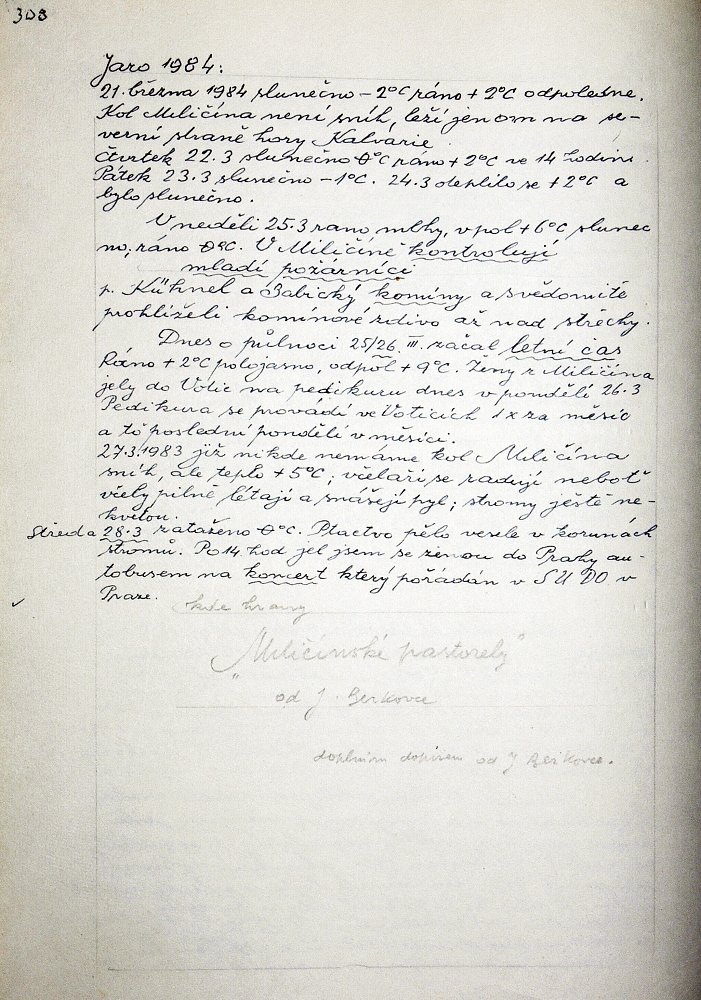 303
Jaro 1984:
21. března 1984 slunečno - 2°C ráno + 2°C odpoledne.
Kol Miličína není sníh, leží jenom na se-
verní straně hory Kalvarie.
Čtvrtek 22.3 slunečno 0°C ráno + 2°C ve 14 hodin.
Pátek 23.3 slunečno - 1°C. 24.3 oteplilo se + 2°C a
bylo slunečno.
V neděli 25.3 rano mlhy, v pol + 6°C slunec
no, ráno 0°C. V Miličíně kontrolují
mladí požárníci
p. Kühnel a Babický komíny a svědomitě
prohlíželi komínové zdivo až nad střechy.
Dnes o půlnoci 25/26. III. začal letní čas
Ráno + 2°C polojasno, odpol + 9°C. Ženy z Miličína
jely do Votic na pedikuru dnes v pondělí 26.3
Pedikura se provádí ve Voticích 1 x za měsíc
a to poslední pondělí v měsíci.
27.3.1983 již nikde nemáme kol Miličína
sníh, ale teplo + 5°C; včelaři se radují neboť
včely pilně létají a snášejí pyl; stromy ještě ne-
kvetou.
Středa 28.3 zataženo 0°C. Ptactvo pělo vesele v korunách
stromů. Po 14 hod jel jsem se ženou do Prahy au-
tobusem na koncert který pořádán v SUDO v
Praze.
kde hrany
„Miličínské pastorely"
od J. Berkovce
dopisem od J Berkovce.